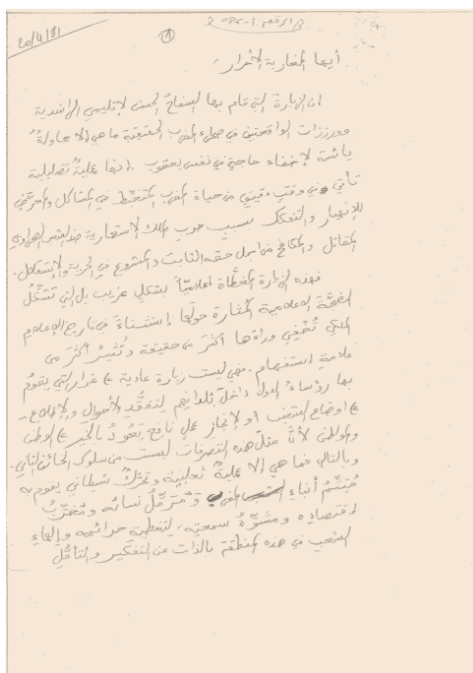 20/4/81
①
أيها المغاربة الأحرار،
ان الزيارة التي قام بها السفاح الحسن لإقليمي الراشدية
وورززات الواقعتين في صحراء المغرب الحقيقية ما هي إلا محاولةٌ
يائسة لإخفاء حاجة في نفس يعقوب. إنها عمليةٌ تضليلية
تأتي في وقتٍ دقيق من حياة المغرب المتخبط في المشاكل والمعرَّض
للإنهيار والتفكك بسبب حرب الملك الإستعمارية ضد الشعب الصحراوي
المقاتل والمكافح من أجل حقه الثابت والمشروع في الحرية والإستقلال.
فهذه الزيارة المغطَّاة إعلاميّاً بشكلٍ غريب بل التي تشكِّلُ
الضجَّة الإعلامية المُثارة حولها إستثناءً في تاريخ الإعلام
الملكي تُخْفِي وراءها أكثرَ من حقيقة وتُثيرُ أكثرَ من
علامة استفهام. فهي ليست زيارة عادية على غرار التي يقومُ
بها رؤساءُ الدول داخلَ بُلدانهم لتفقُّد الأحوال والإطلاع
على أوضاع الشعب أو لإنجاز عملٍ نافع يَعُودُ بالخير على الوطن
والمواطن لأنَّ مثلَ هذه التصرفات ليست من سلوك الحسن الثاني.
وبالتالي فما هي إلا عمليةٌ ثعلبية وتحركٌ شيطاني يقوم به
مُيَتِّمُ أبناء المغرب ومُرَمِّلُ نسائه ومُخَرِّبُ
اقتصاده ومشوِّهُ سمعته، لتغطية جرائمه وإلهاء
الشعب في هذه المنطقة بالذات عن التفكير والتأمُّل